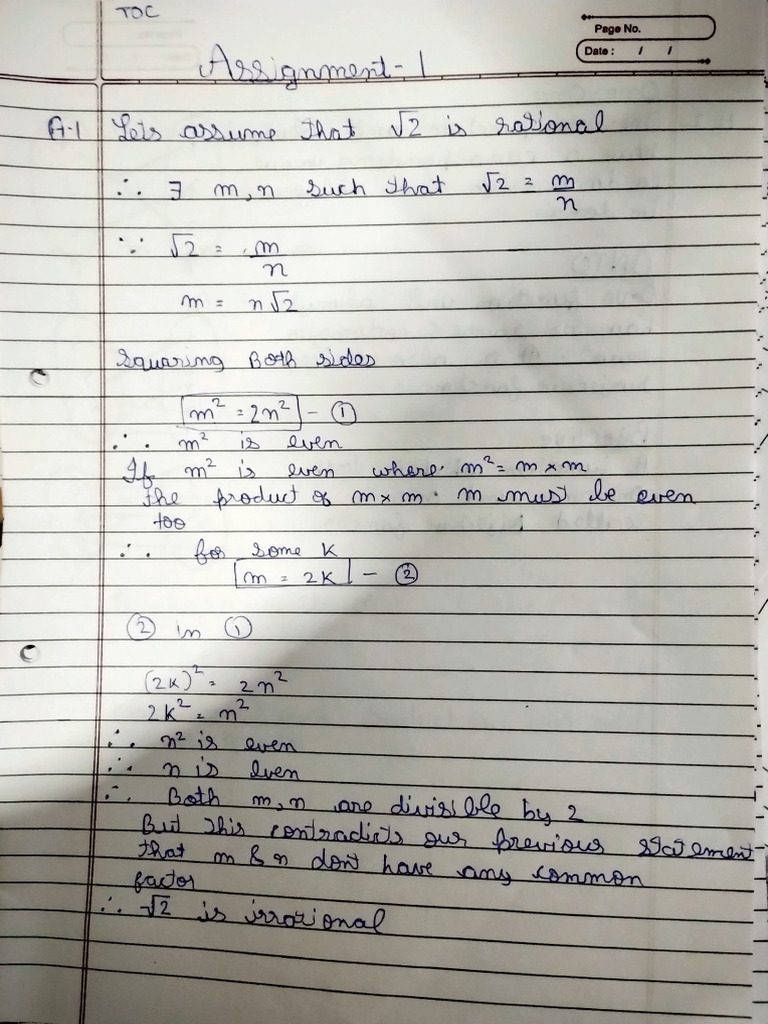 TOC
Page No.
Date : / /
Assignment-1
A-1 Lets assume that √2 is rational
∴ ∃ m,n such that √2 = m/n
∵ √2 = m/n
m = n√2
Squaring Both sides
m² = 2n² - ①
∴ m² is even
If m² is even where m² = m × m
the product of m × m. m must be even
too
∴ for some K
m = 2K - ②
② in ①
(2K)² = 2n²
2K² = n²
∴ n² is even
∴ n is even
∴ Both m,n are divisible by 2
But this contradicts our previous statement
that m & n dont have any common
factor
∴ √2 is irrational